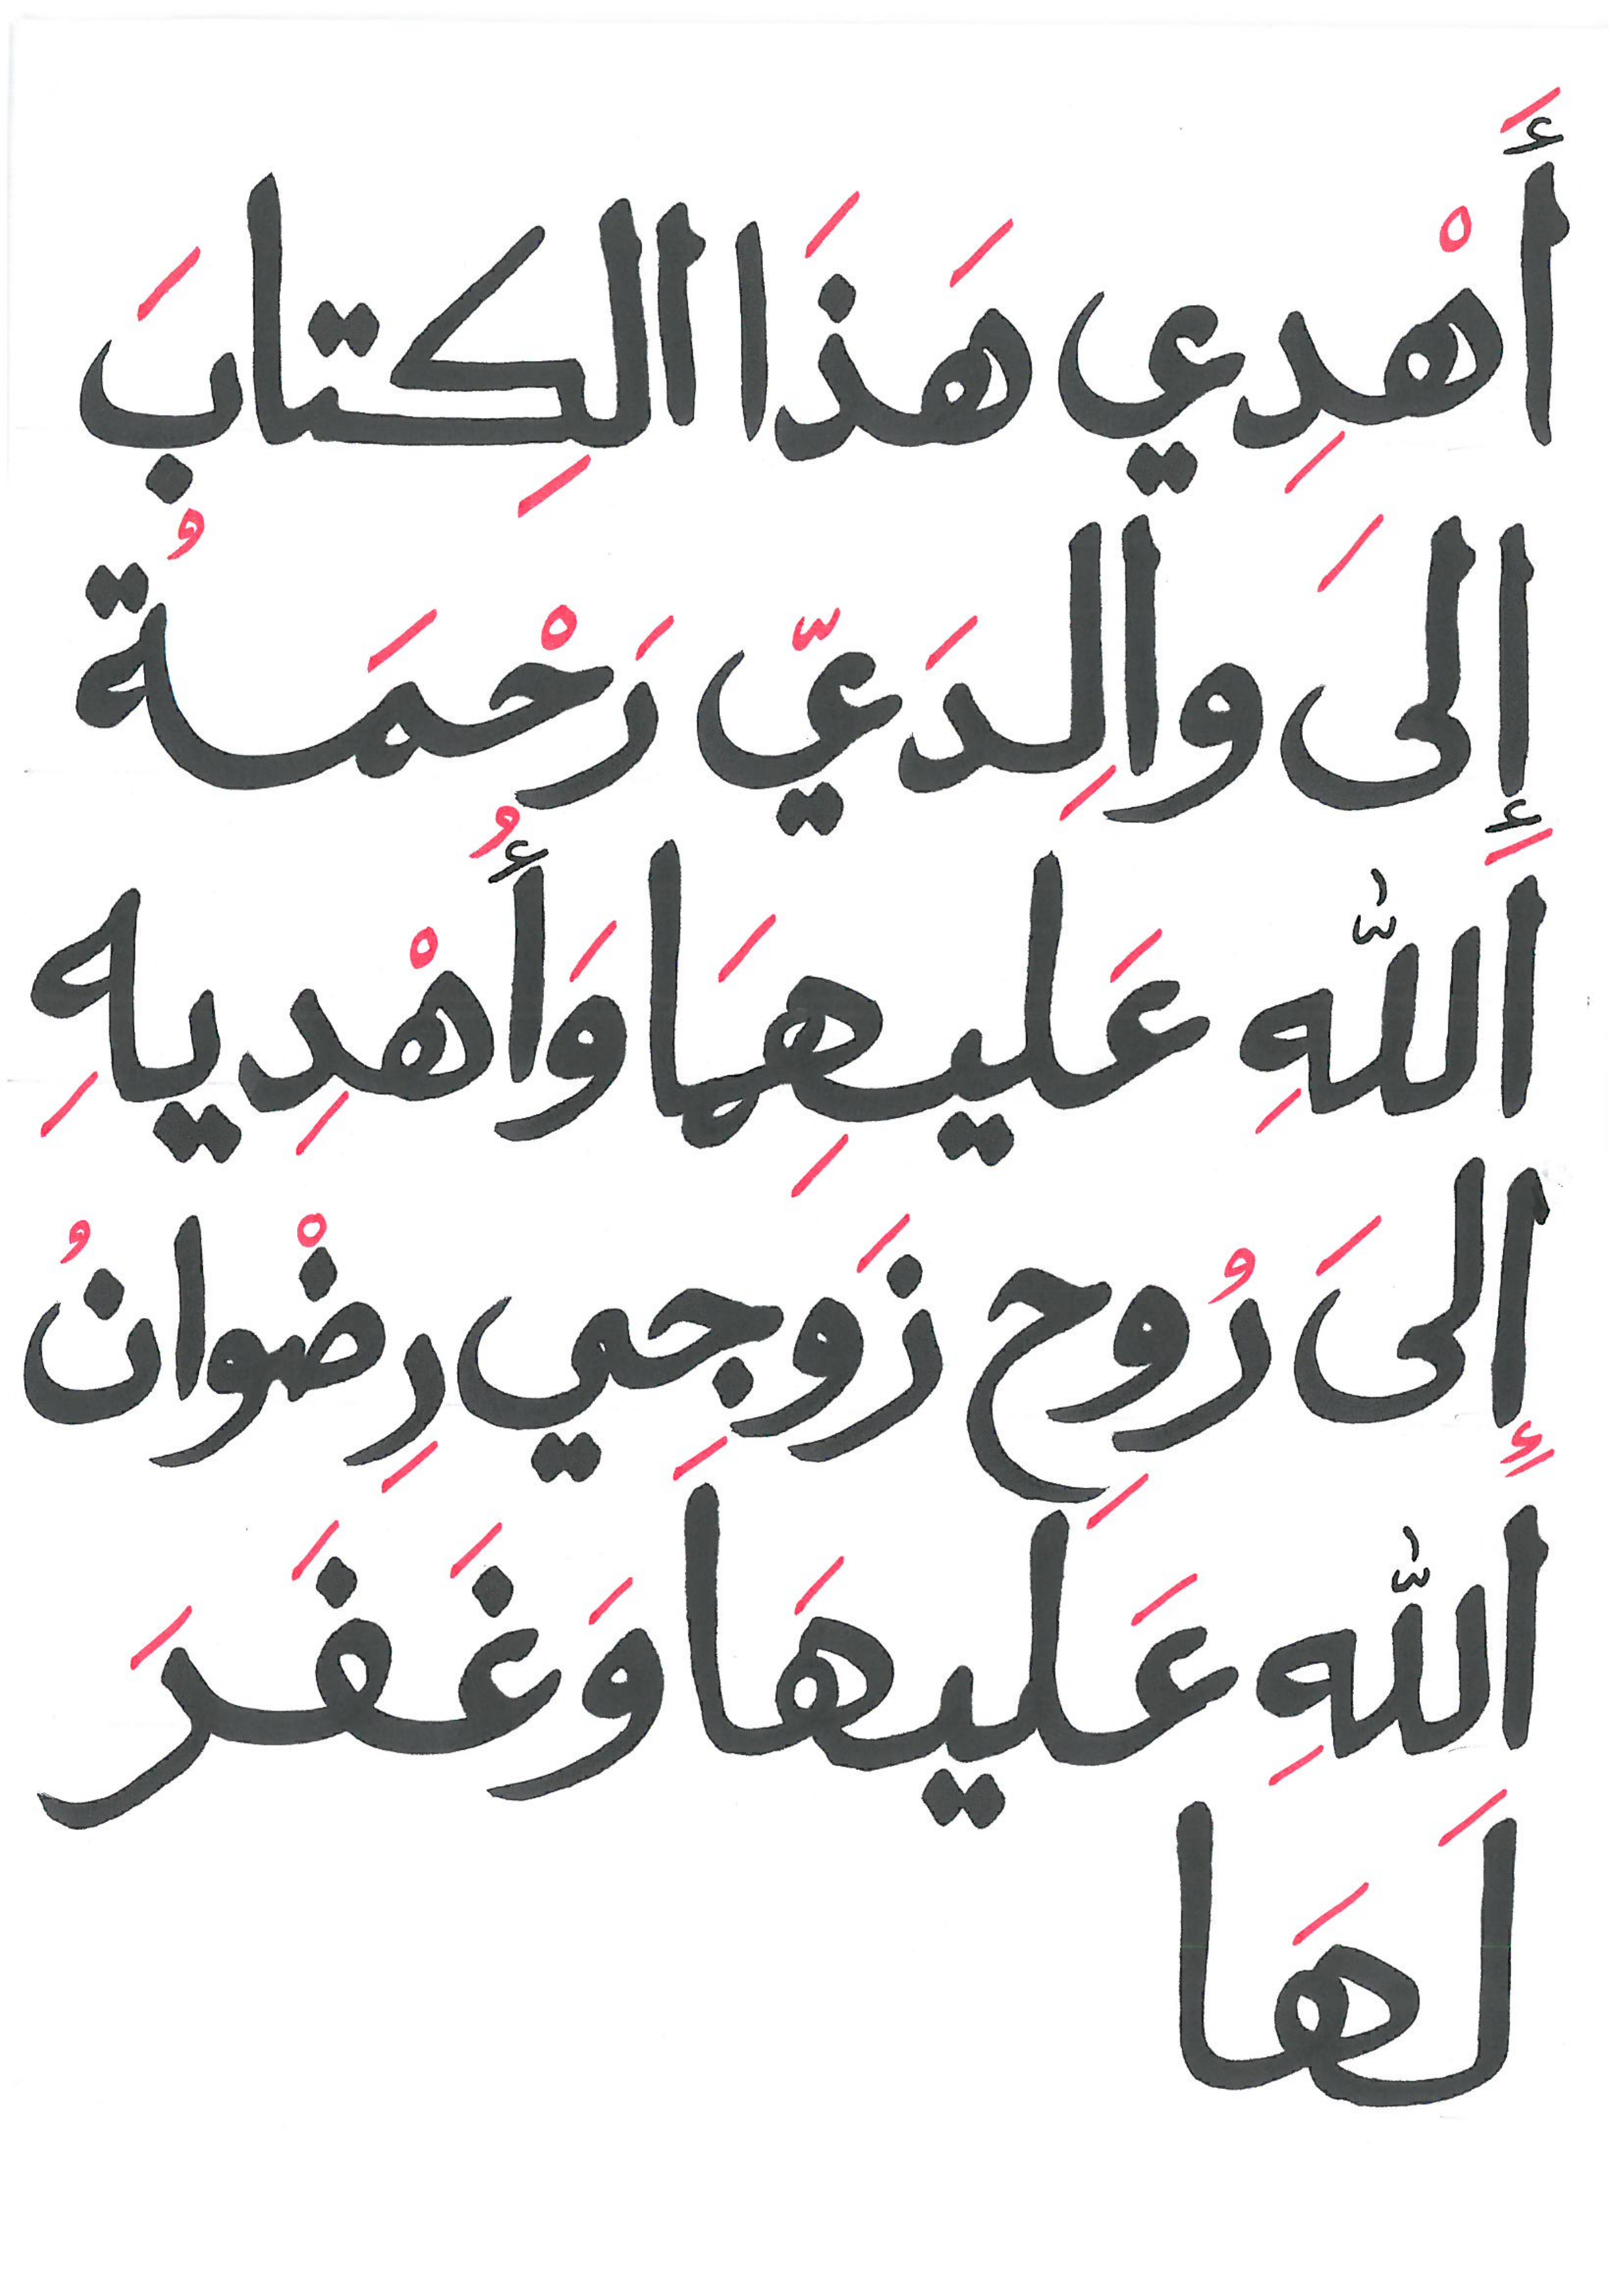 أَهْدِي هَذَا الكِتابَ
إِلىَ والِدَيّ رَحْمَةُ
اللّٰهِ عَليهِمَا وَأُهْدِيهِ
إِلىَ رُوحِ زَوجِي رِضْوانُ
اللّٰهِ عَليهَا وَغَفَرَ
لَهَا